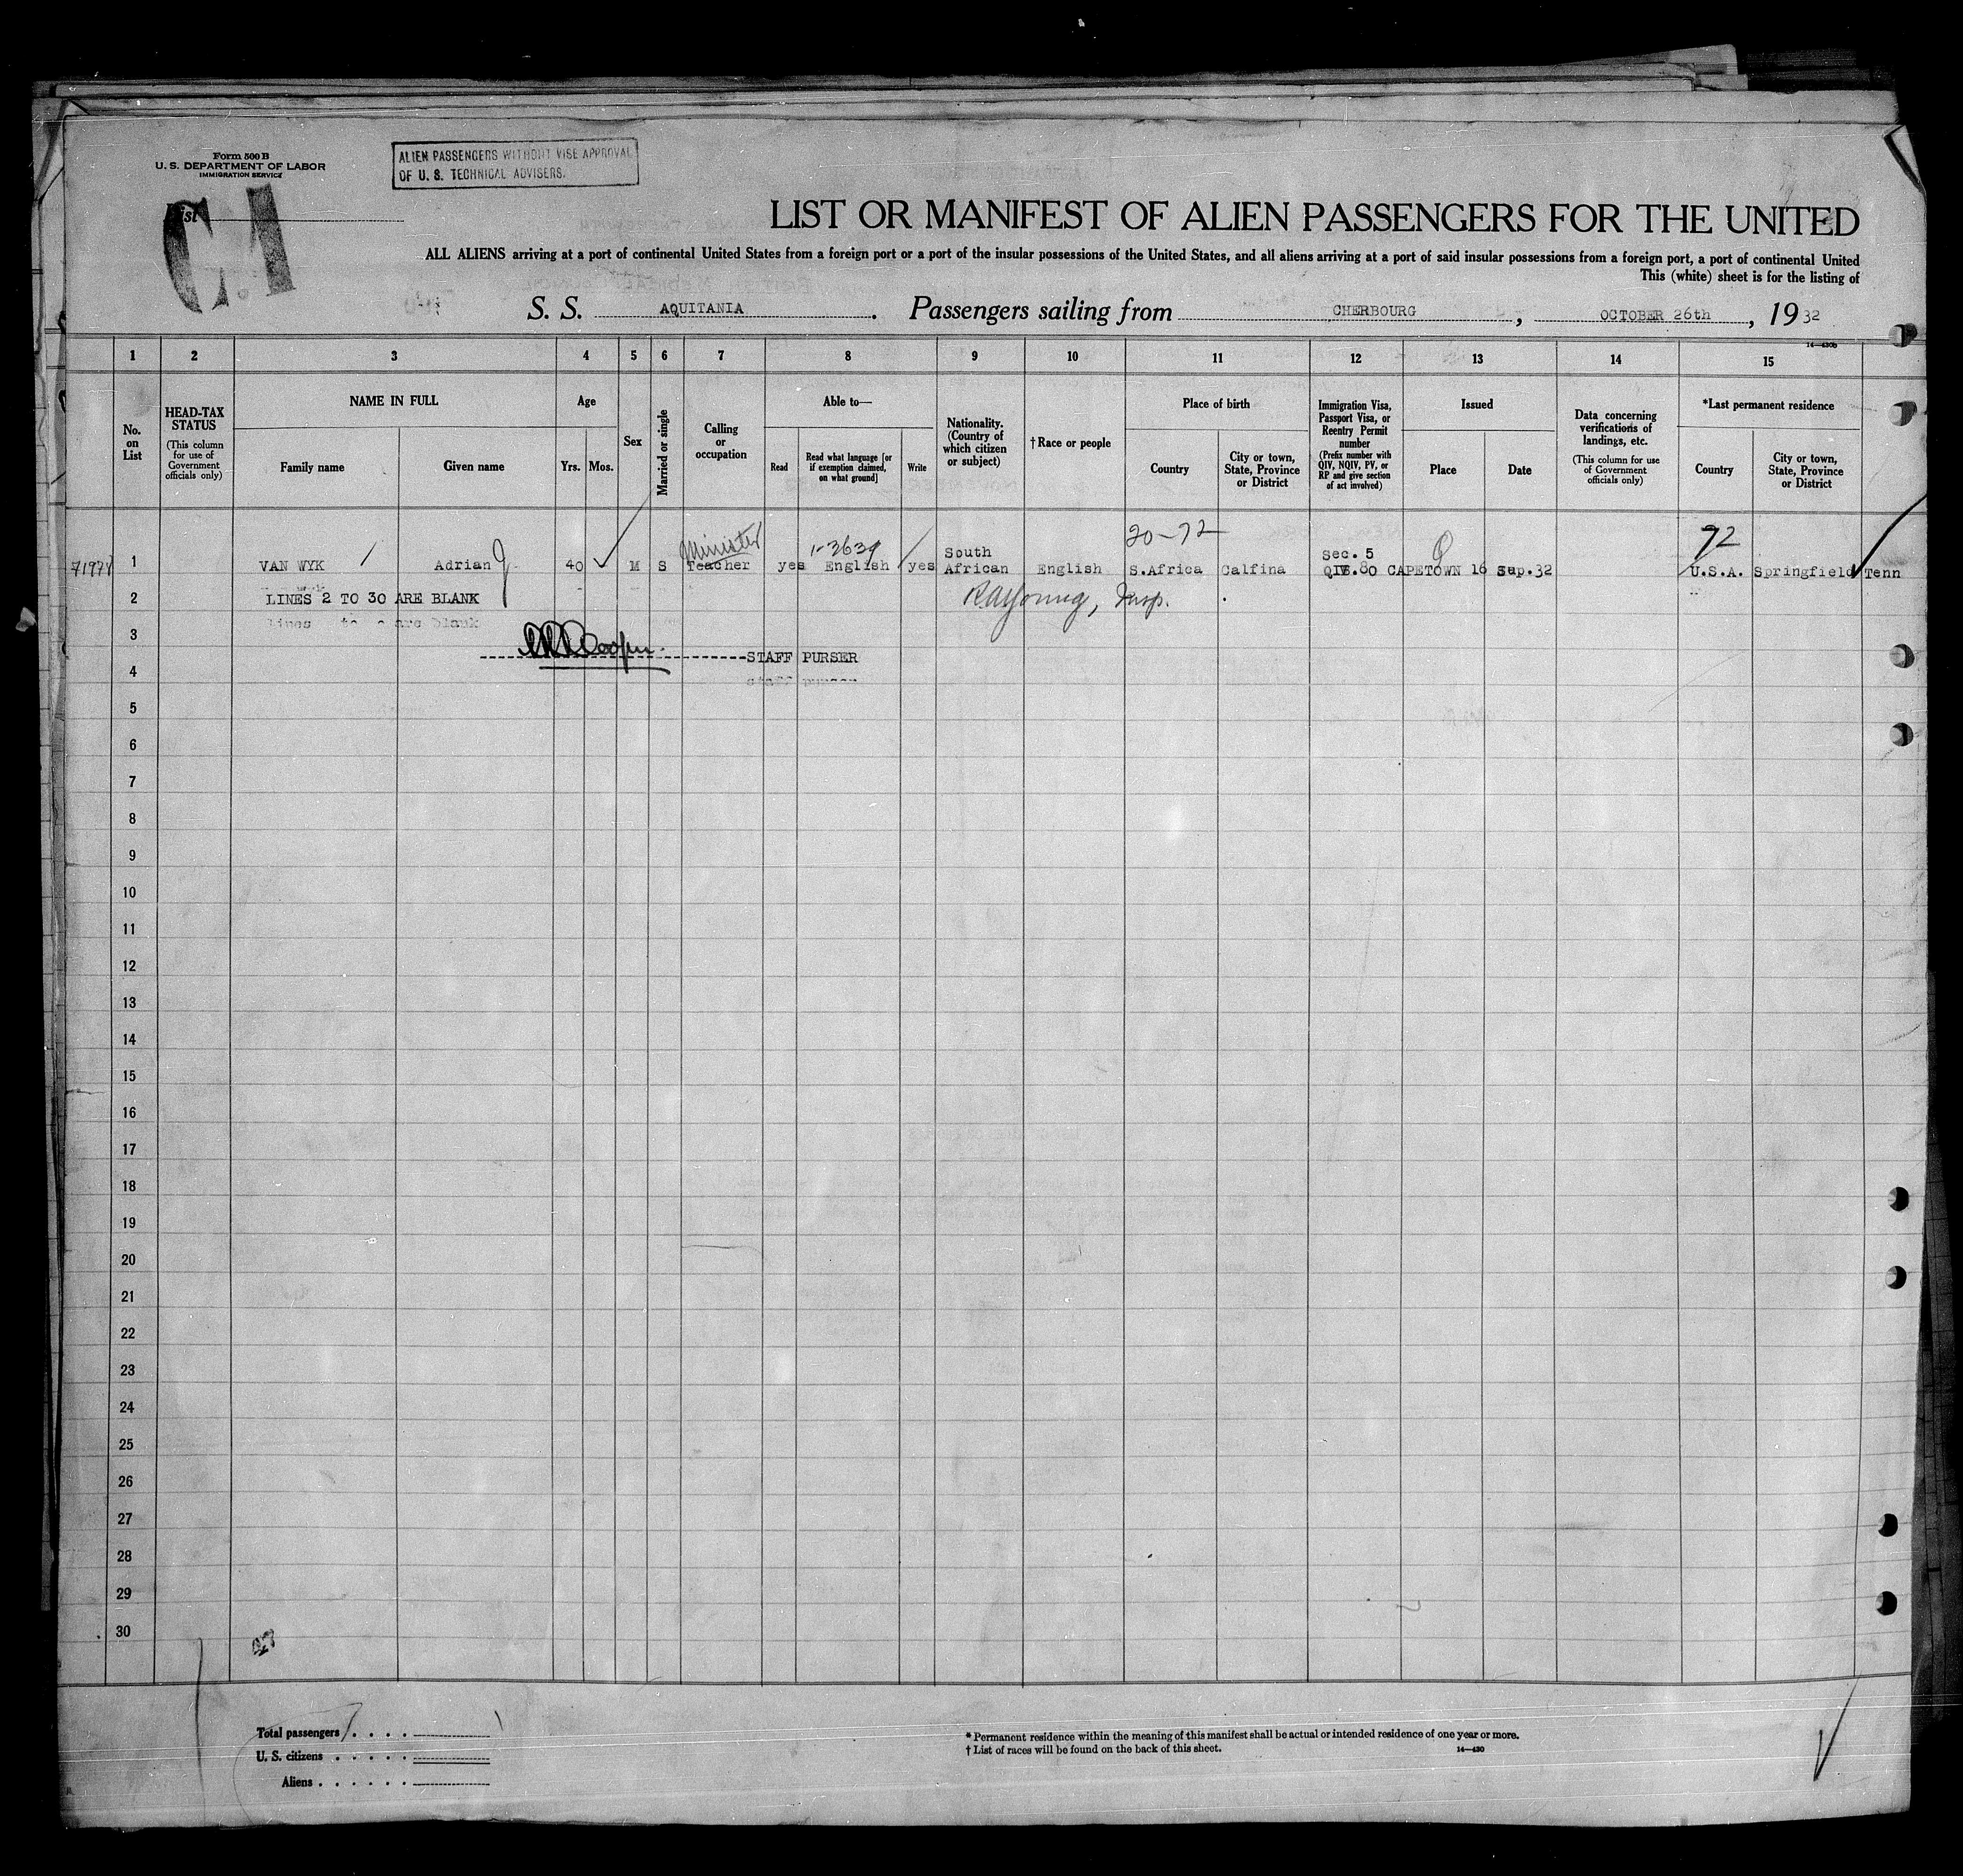 Form 500 B
U. S. DEPARTMENT OF LABOR
IMMIGRATION SERVICE
ALIEN PASSENGERS WITHOUT VISE APPROVAL
OF U. S. TECHNICAL ADVISERS.
List
LIST OR MANIFEST OF ALIEN PASSENGERS FOR THE UNITED
ALL ALIENS arriving at a port of continental United States from a foreign port or a port of the insular possessions of the United States, and all aliens arriving at a port of said insular possessions from a foreign port, a port of continental United
This (white) sheet is for the listing of
S. S. AQUITANIA. Passengers sailing from CHERBOURG, OCTOBER 26th, 1932
14—430b
1 2 3 4 5 6 7 8 9 10 11 12 13 14 15
No. on List
HEAD-TAX STATUS
(This column for use of Government officials only)
NAME IN FULL
Family name
Given name
Age
Yrs.
Mos.
Sex
Married or single
Calling or occupation
Able to—
Read
Read what language [or if exemption claimed, on what ground]
Write
Nationality. (Country of which citizen or subject)
†Race or people
Place of birth
Country
City or town, State, Province or District
Immigration Visa, Passport Visa, or Reentry Permit number
(Prefix number with QIV, NQIV, PV, or RP and give section of act involved)
Issued
Place
Date
Data concerning verifications of landings, etc.
(This column for use of Government officials only)
*Last permanent residence
Country
City or town, State, Province or District
Minister 1-3639 South 20-72 Sec. 5 72
1 VAN WYK Adrian 40 M S Teacher yes English yes African English S.Africa Calfina CAPETOWN 16 32 U.S.A. Springfield Tenn
2 LINES 2 TO 30 ARE BLANK Insp.
Lines to are blank
3
STAFF PURSER
4
staff purser
5
6
7
8
9
10
11
12
13
14
15
16
17
18
19
20
21
22
23
24
25
26
27
28
29
30
Total passengers . . . .
U. S. citizens . . . . .
Aliens . . . . . .
* Permanent residence within the meaning of this manifest shall be actual or intended residence of one year or more.
† List of races will be found on the back of this sheet.
14—430